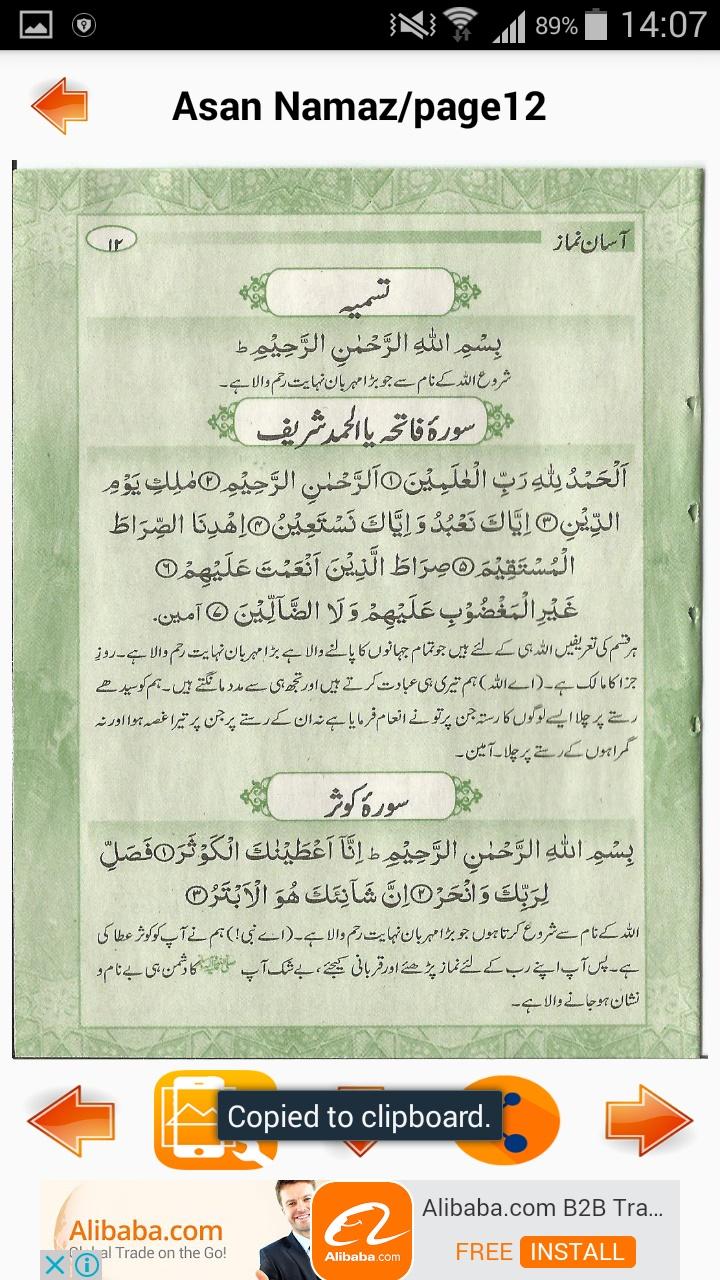 89% 14:07
Asan Namaz/page12
آسان نماز ۱۲
تسمیہ
بِسْمِ اللهِ الرَّحْمٰنِ الرَّحِيْمِ ط
شروع اللہ کے نام سے جو بڑا مہربان نہایت رحم والا ہے۔
سورۂ فاتحہ یا الحمد شریف
اَلْحَمْدُ لِلّٰهِ رَبِّ الْعٰلَمِيْنَ ① اَلرَّحْمٰنِ الرَّحِيْمِ ② مٰلِكِ يَوْمِ
الدِّيْنِ ③ اِيَّاكَ نَعْبُدُ وَ اِيَّاكَ نَسْتَعِيْنُ ④ اِهْدِنَا الصِّرَاطَ
الْمُسْتَقِيْمَ ⑤ صِرَاطَ الَّذِيْنَ اَنْعَمْتَ عَلَيْهِمْ ⑥
غَيْرِ الْمَغْضُوْبِ عَلَيْهِمْ وَ لَا الضَّآلِّيْنَ ⑦ آمین.
ہر قسم کی تعریفیں اللہ ہی کے لئے ہیں جو تمام جہانوں کا پالنے والا ہے بڑا مہربان نہایت رحم والا ہے۔ روزِ
جزا کا مالک ہے۔ (اے اللہ) ہم تیری ہی عبادت کرتے ہیں اور تجھ ہی سے مدد مانگتے ہیں۔ ہم کو سیدھے
رستے پر چلا ایسے لوگوں کا رستہ جن پر تو نے انعام فرمایا ہے نہ ان کے رستے پر جن پر تیرا غصہ ہوا اور نہ
گمراہوں کے رستے پر چلا۔ آمین۔
سورۂ کوثر
بِسْمِ اللهِ الرَّحْمٰنِ الرَّحِيْمِ ط اِنَّآ اَعْطَيْنٰكَ الْكَوْثَرَ ① فَصَلِّ
لِرَبِّكَ وَ انْحَرْ ② اِنَّ شَانِئَكَ هُوَ الْاَبْتَرُ ③
اللہ کے نام سے شروع کرتا ہوں جو بڑا مہربان نہایت رحم والا ہے۔ (اے نبی!) ہم نے آپ کو کوثر عطا کی
ہے۔ پس آپ اپنے رب کے لئے نماز پڑھئے اور قربانی کیجئے، بے شک آپ ﷺ کا دشمن ہی بے نام و
نشان ہو جانے والا ہے۔
Copied to clipboard.
Alibaba.com
Global Trade on the Go!
Alibaba.com
Alibaba.com B2B Tra...
FREE INSTALL